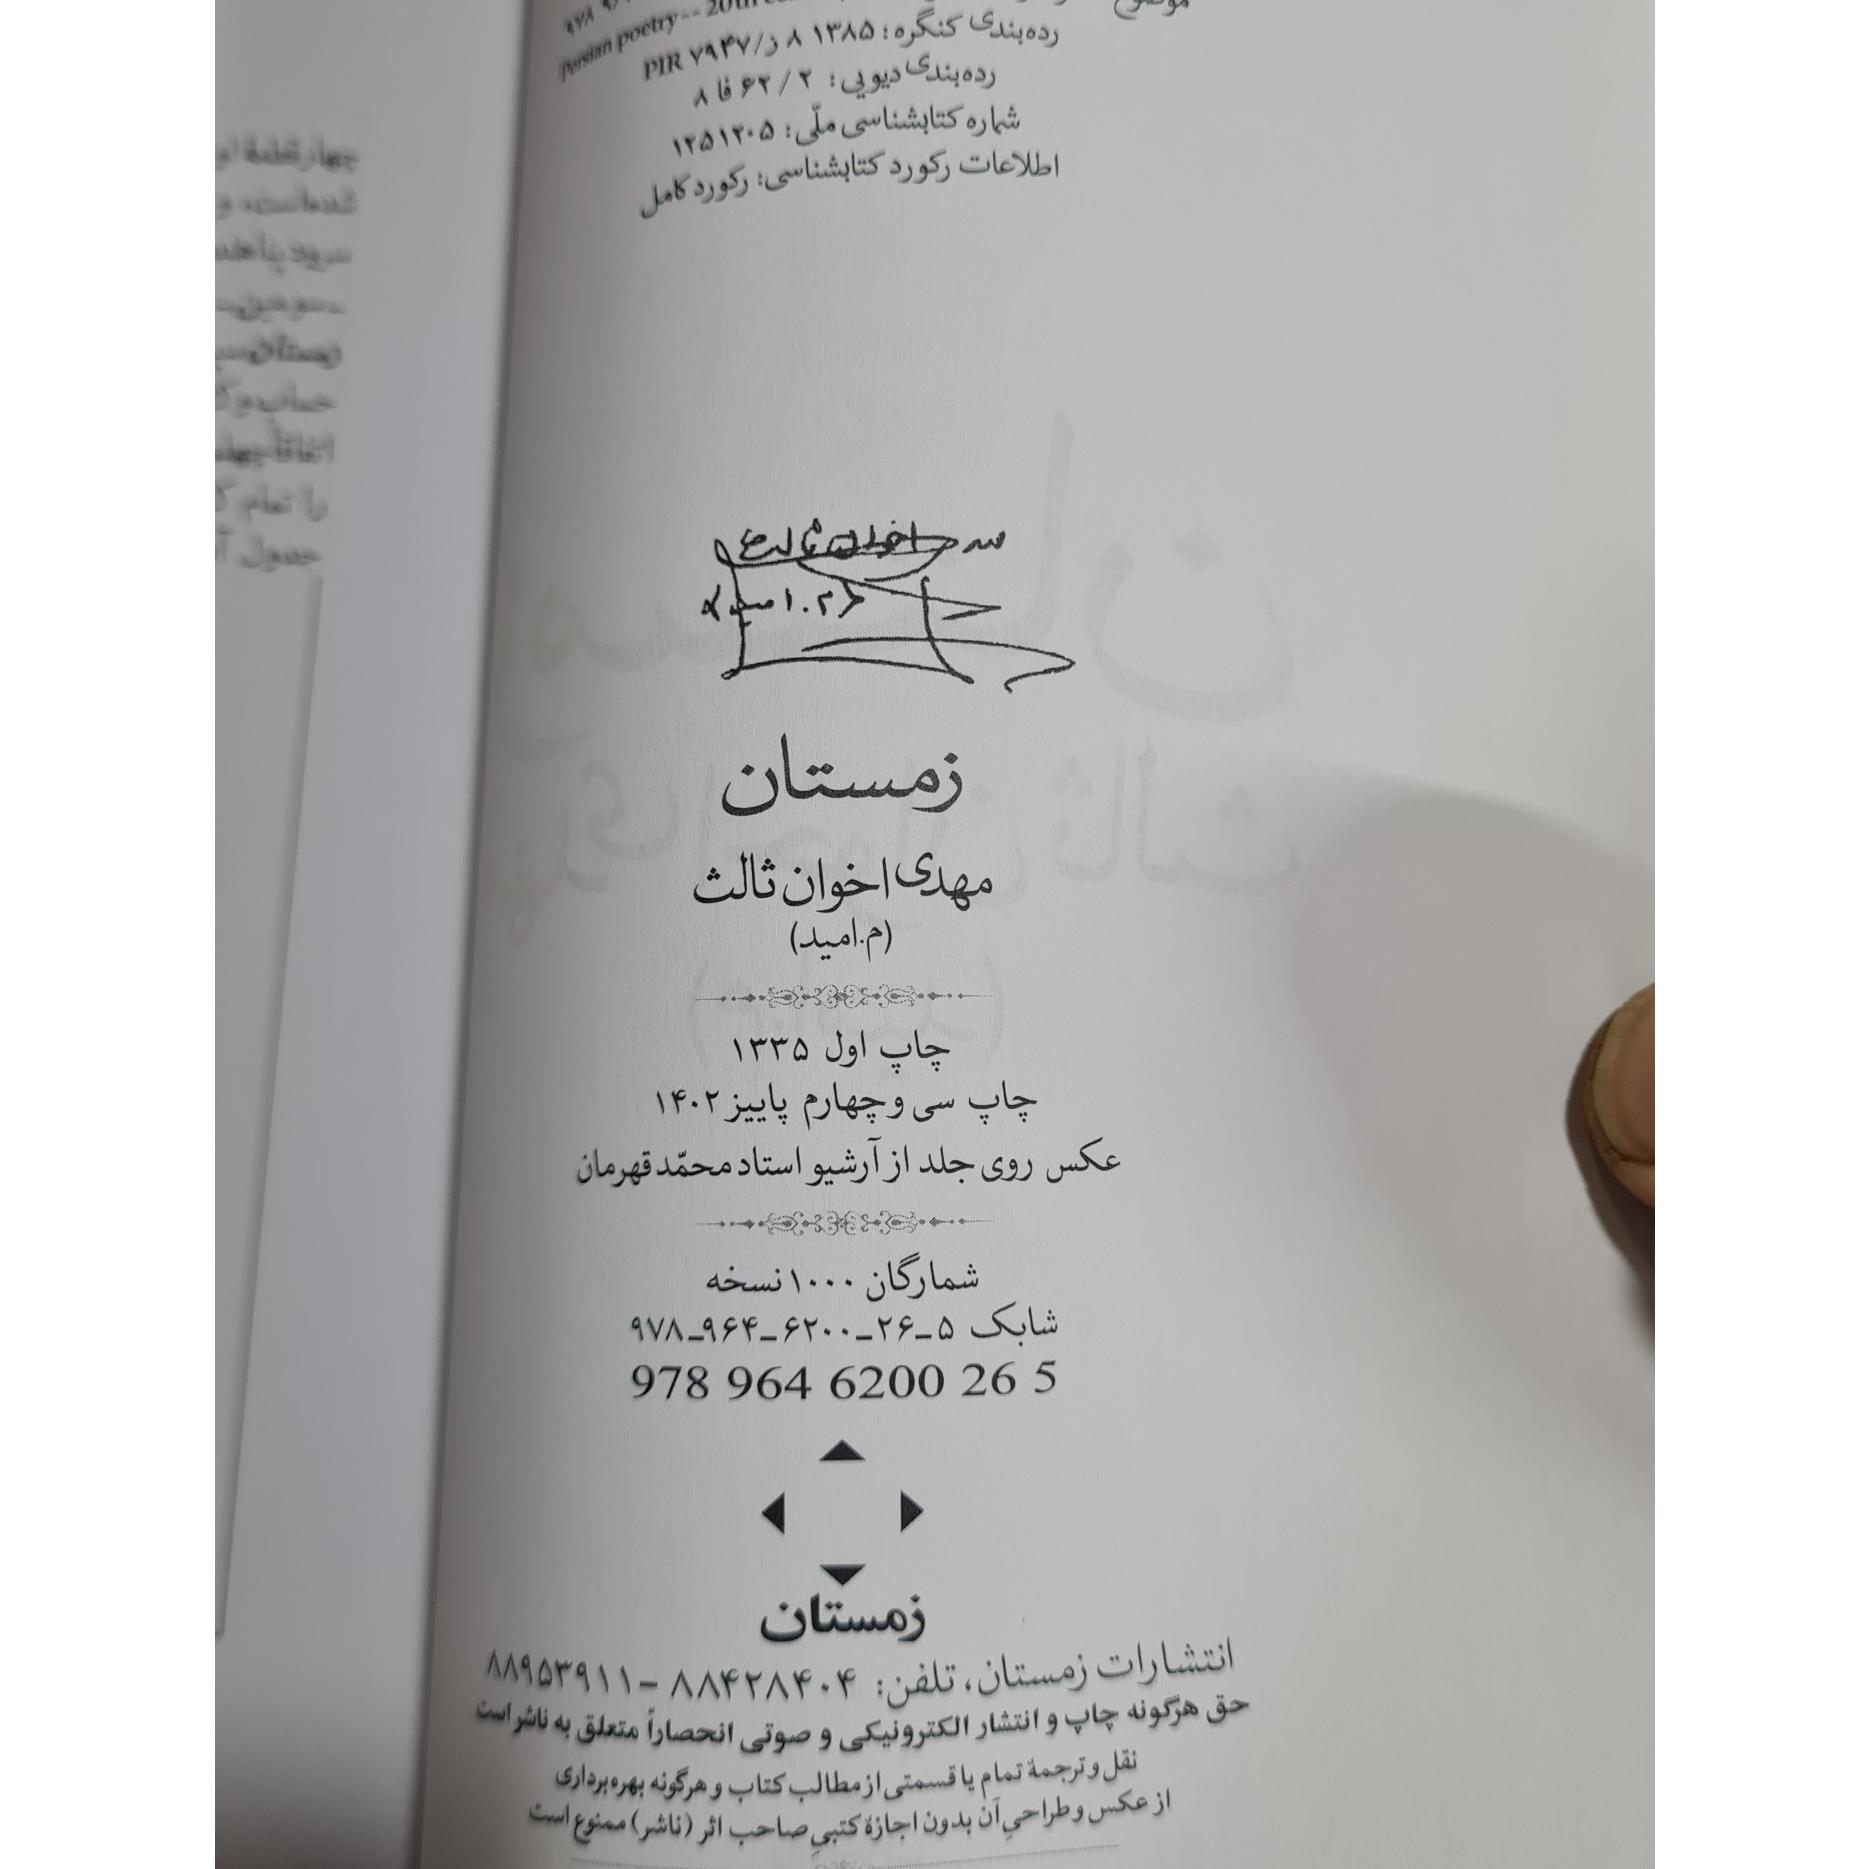 Persian poetry -- 20th
رده‌بندی کنگره: ۱۳۸۵ ۸ ز/۷۹۴۷ PIR
رده‌بندی دیویی: ۶۲/۲ فا ۸
شماره کتابشناسی ملّی: ۱۲۵۱۲۰۵
اطلاعات رکورد کتابشناسی: رکورد کامل
اخوان ثالث
(م.امید)
زمستان
مهدی اخوان ثالث
(م.امید)
چاپ اول ۱۳۳۵
چاپ سی و چهارم پاییز ۱۴۰۲
عکس روی جلد از آرشیو استاد محمّد قهرمان
شمارگان ۱۰۰۰ نسخه
شابک ۵ـ۲۶ـ۶۲۰۰ـ۹۶۴ـ۹۷۸
978 964 6200 26 5
زمستان
انتشارات زمستان، تلفن: ۸۸۴۲۸۴۰۴ – ۸۸۹۵۳۹۱۱
حق هرگونه چاپ و انتشار الکترونیکی و صوتی انحصاراً متعلق به ناشر است
نقل و ترجمهٔ تمام یا قسمتی از مطالب کتاب و هرگونه بهره‌برداری
از عکس و طراحیِ آن بدون اجازهٔ کتبیِ صاحب اثر (ناشر) ممنوع است
چهار قطعهٔ
شده‌است، و
سرود
ـ سومین ـ
زمستان
حساب و
اتفاقاً
را تمام
جدول